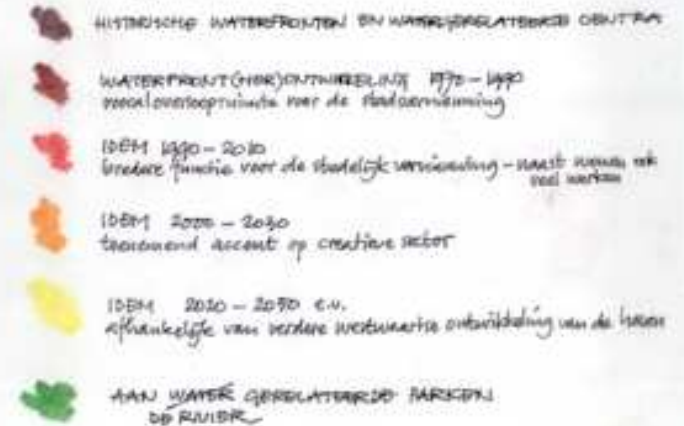 HISTORISCHE WATERFRONTEN EN WATERGERELATEERDE CENTRA
WATERFRONT(HER)ONTWIKKELING 1970 – 1990
vooral overloopruimte voor de stadsvernieuwing
IDEM 1990 – 2010
bredere functie voor de stedelijk vernieuwing – naast wonen ook
veel werken
IDEM 2000 – 2030
toenemend accent op creatieve sector
IDEM 2020 – 2050 e.v.
afhankelijk van verdere westwaartse ontwikkeling van de haven
AAN WATER GERELATEERDE PARKEN
DE RIVIER